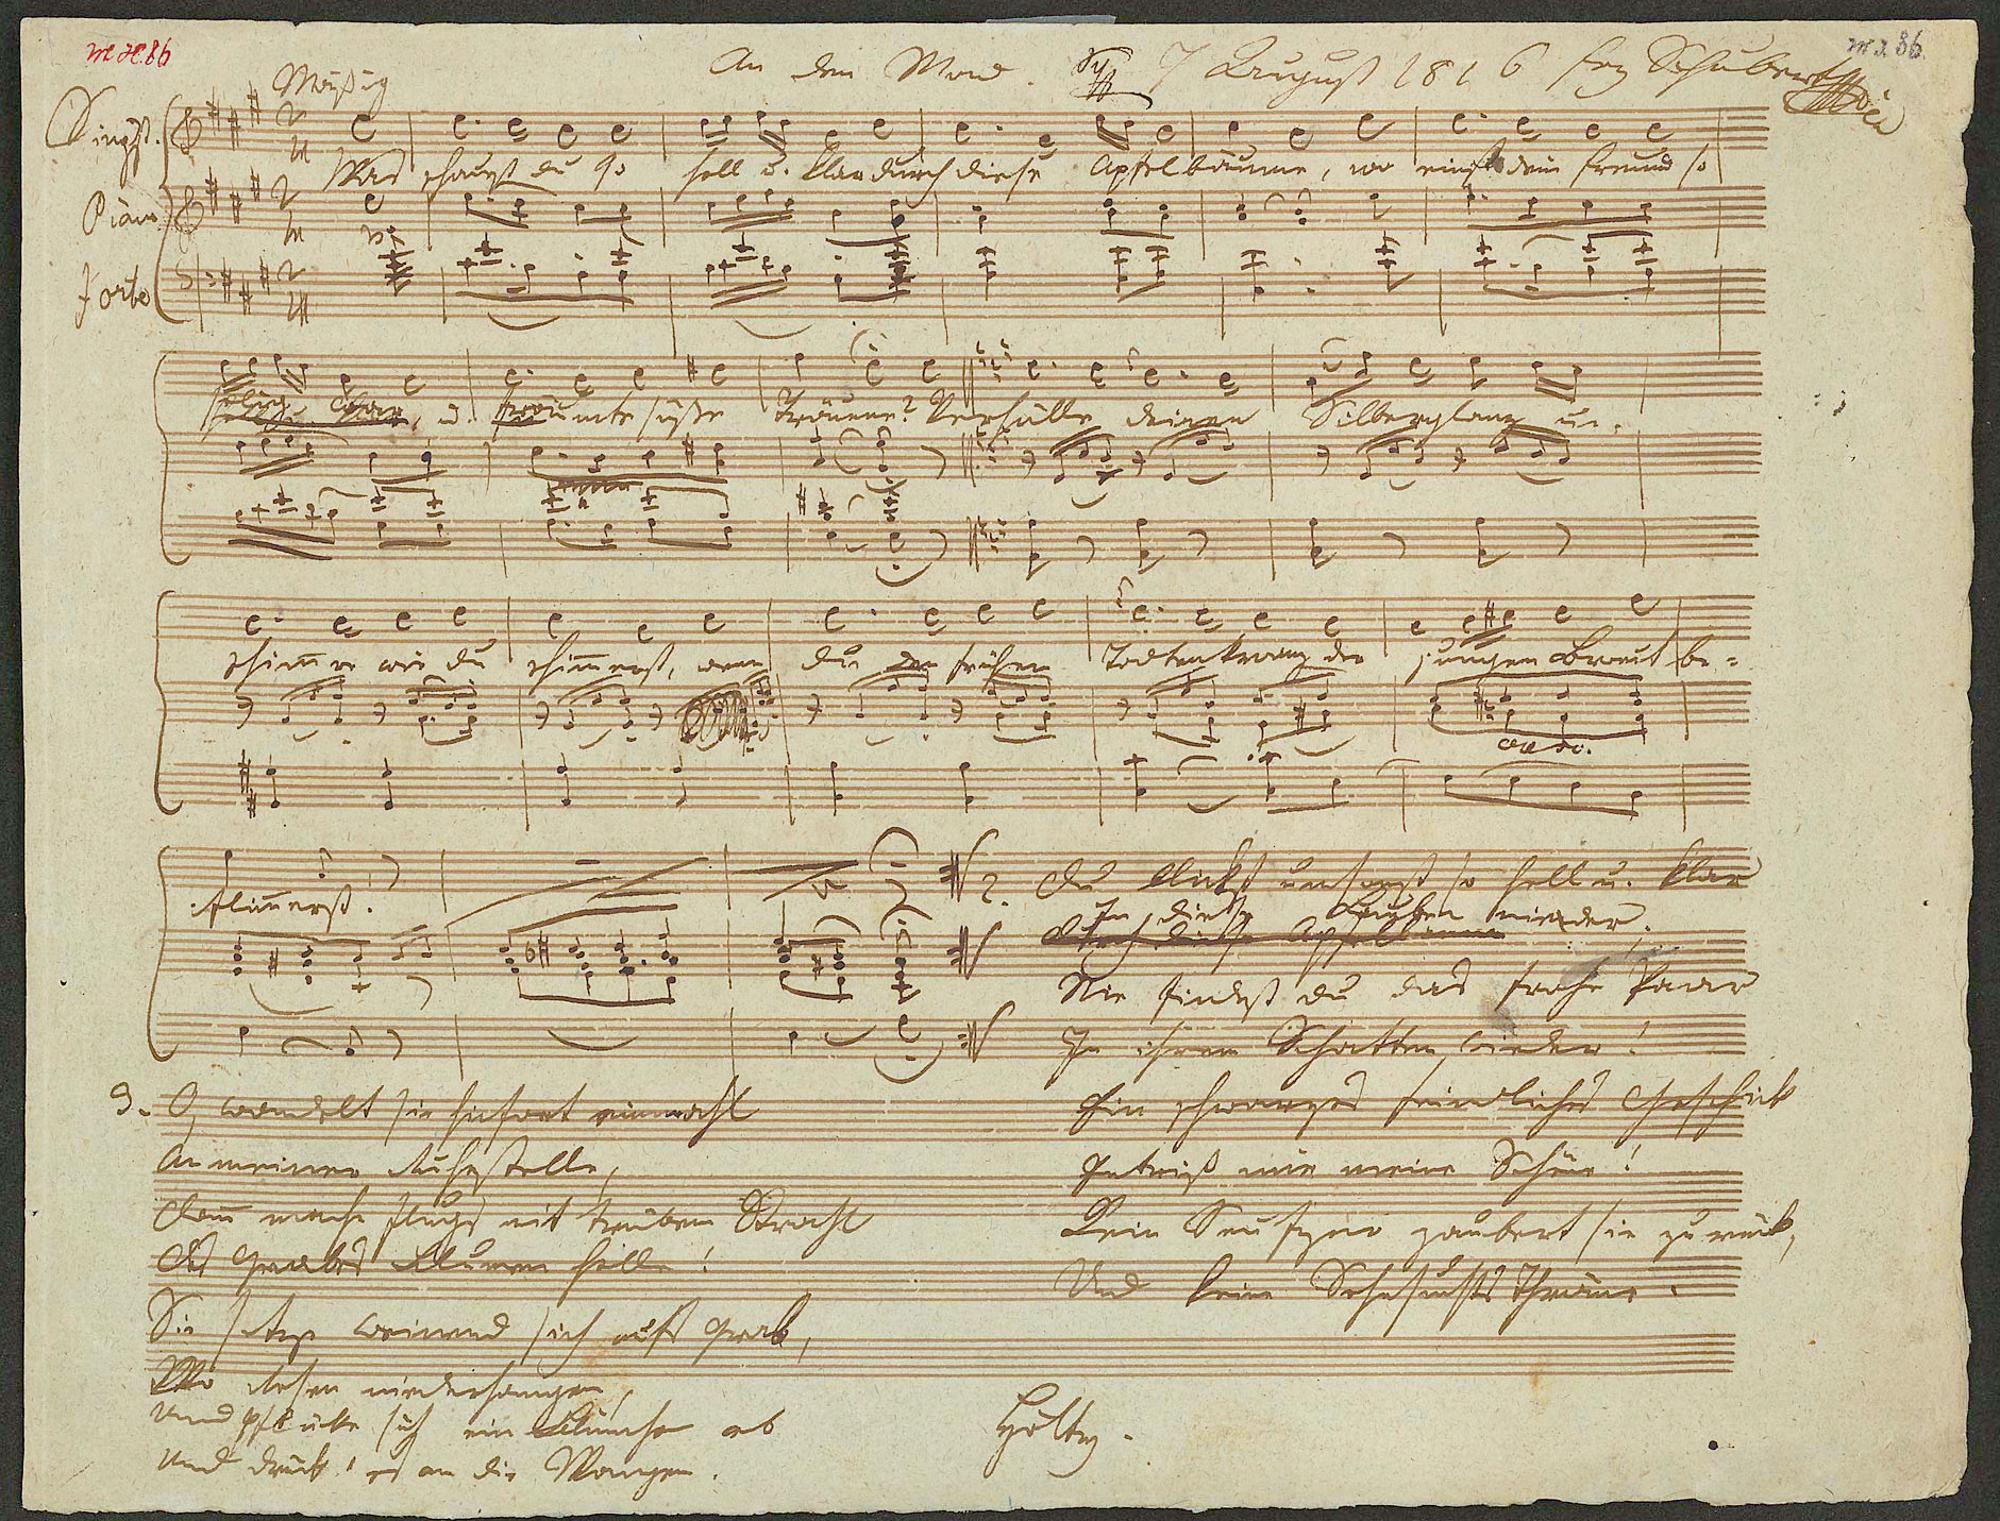 MH.86
An den Mond. 7 August 1816 Frz Schubert
86
Mäßig
Singst.
Piano
Forte
Was schaust du so hell u. klar durch diese Apfelbäume, wo einst dein Freund so
selig war, u. träumte süße Träume? Verhülle deinen Silberglanz u.
schimmre wie du schimmerst, wenn du den frühen Todtenkranz der jungen Braut be=
flimmerst!
cresc.
2. Du blickst umsonst so hell u. klar
In diese Lauben nieder.
durch diese Apfelbäume
Nie findest du das frohe Paar
In ihrem Schatten wieder!
Ein schwarzes feindliches Geschick
Entriß mir meine Schöne!
Kein Seufzer zaubert sie zurück,
Und keine Sehnsuchts Thräne.
3. O wandelt sie hinfort einmahl
An meiner Ruhestelle,
Dann mache flugs mit trübem Strahl
Des Grabes Blumen helle!
Sie setze weinend sich aufs Grab,
Wo Rosen niederhangen,
Und pflücke sich ein Blümchen ab
Und drück' es an die Wangen.
Hölty.